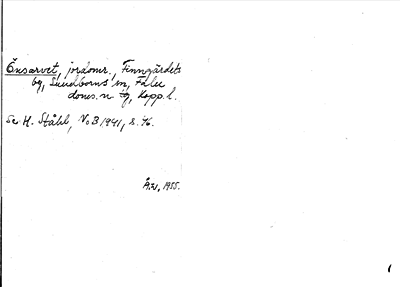 Önsarvet, jordomr., Finngärdets
by, Sundborns sn, Falu
doms.n tg, Kopp. l.
Se H. Ståhl, NoB 1941, s. 46.
Å.W, 1955.